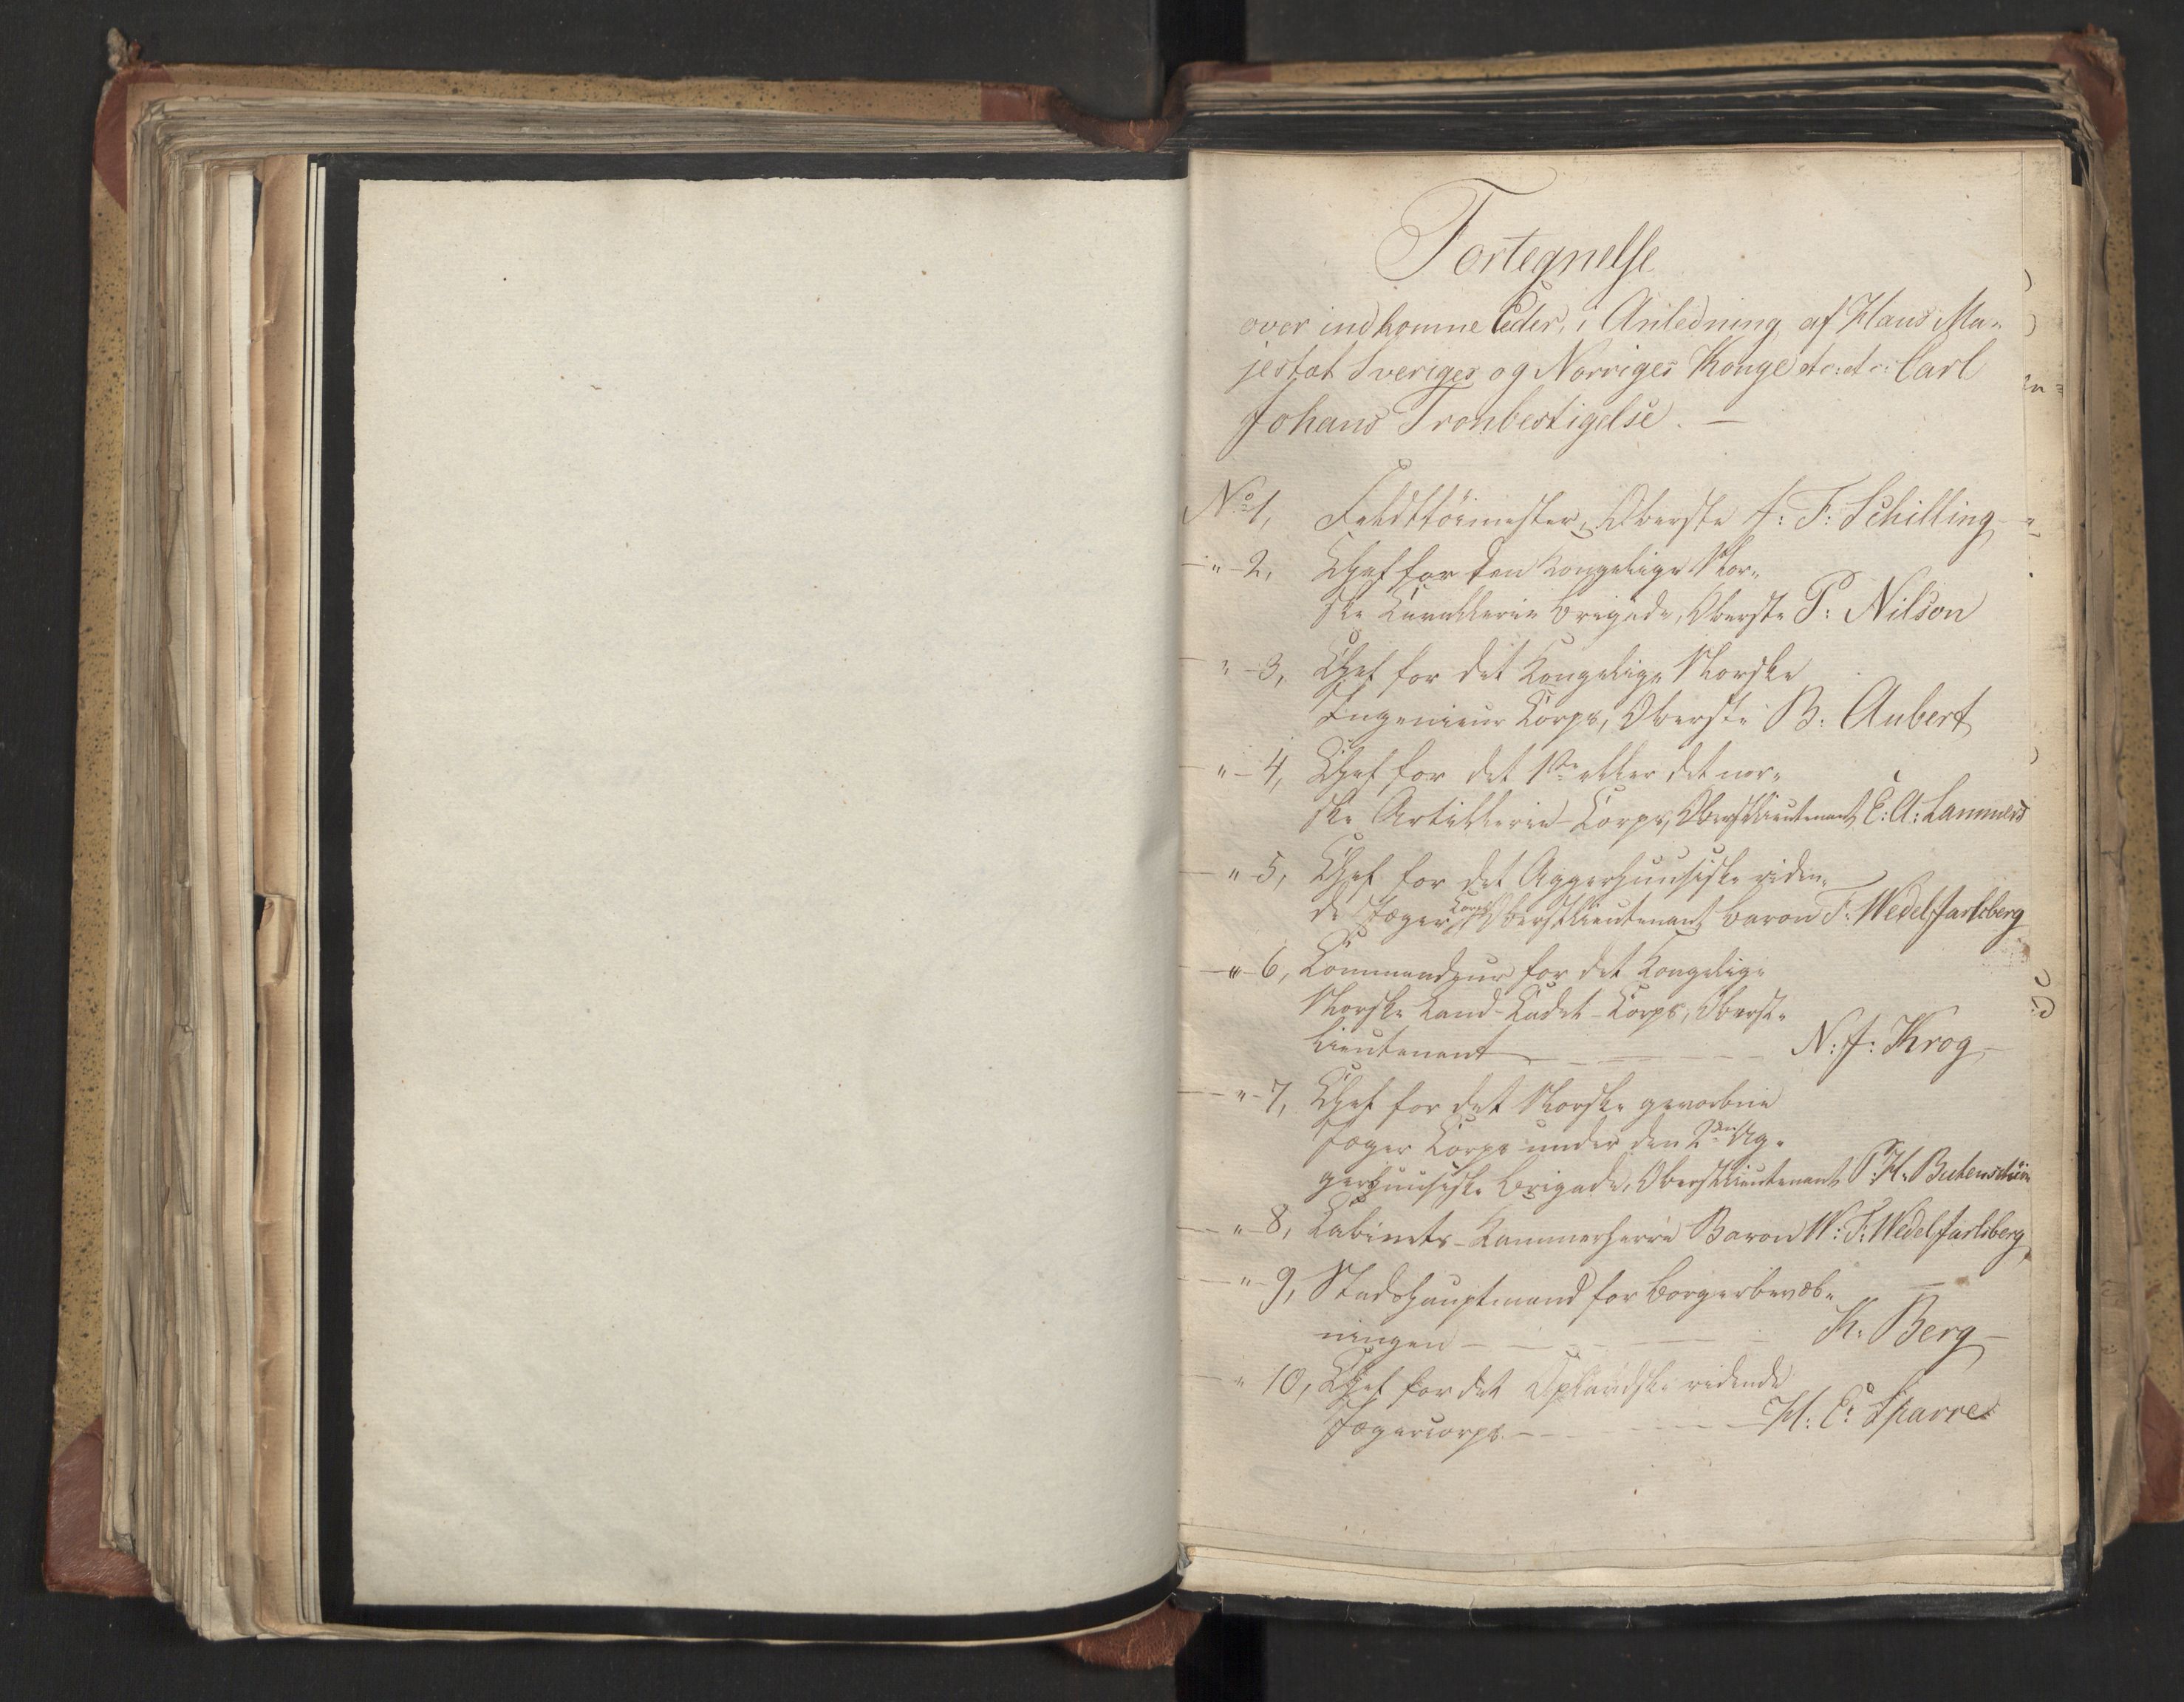 Fortegnelse
over indkomne Eder, i Anledning af Hans Ma„
jestæt Sveriges og Norriges Konge etc: etc: Carl
Johans Tronbestigelse. —
No 1, Feldttöimester, Oberste J: F: Schilling
— " — 2, Chef for den Kongelige Nor„
ske Cavallerie Brigade, Oberste P: Nilson
— " — 3, Chef for det Kongelige Norske
Ingenieur Corps, Oberste B: Aubert
— " — 4, Chef for det 1ste eller det nor„
ske Artillerie-Corps, Oberstlieutenant E: A: Lammers
— " 5, Chef for det Aggerhuusiske riden„
de Jæger Corps Oberstlieutenant Baron F: Wedel Jarlsberg
— " — 6, Commandeur for det Kongelige
Norske Land-Cadet-Corps, Oberst„
lieutenant — — — N: J: Krog —
— " — 7, Chef for det Norske gevorbne
Jæger Corps under den 2den Ag„
gerhuusiske Brigade, Oberstlieutenant P: H: Butenschön
— " — 8, Cabinets-Kammerherre Baron W: F: Wedel Jarlsberg
— " — 9, Stadshauptmand for Borgerbevæb„
ningen — — — H. Berg —
— " 10, Chef for det Oplandske ridende
Jægercorps — — — H: E: Sparre